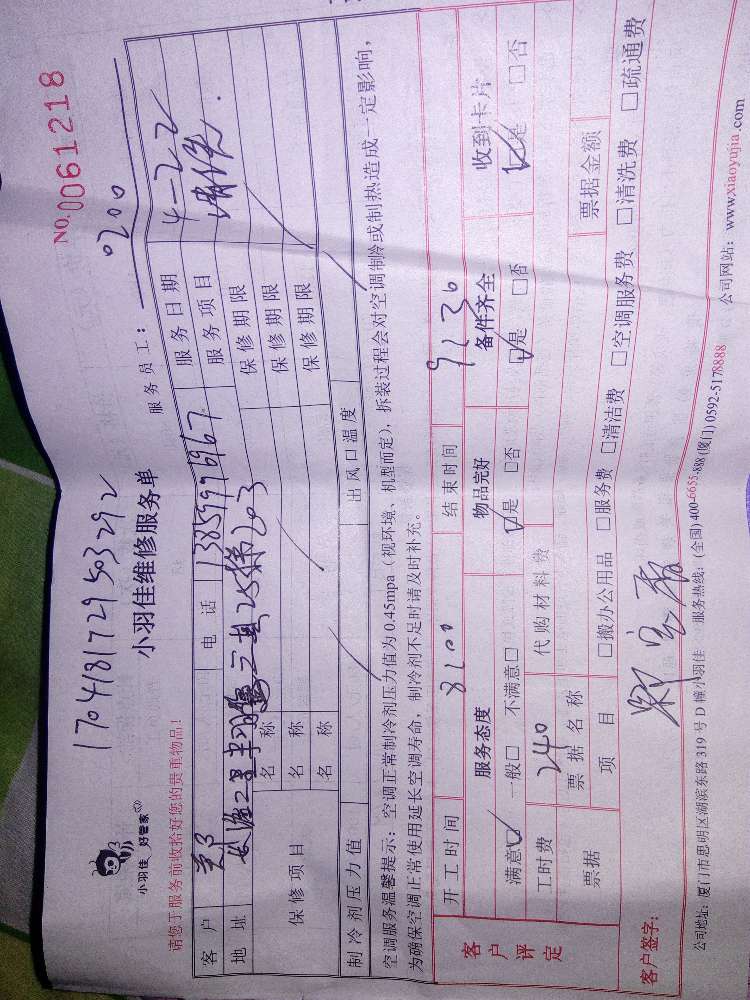 NO.0061218
170418172950329２
小羽佳 好管家
小羽佳维修服务单
服务员工： 0200
请您于服务前收拾好您的贵重物品！
客户 电话 13859976967 服务日期 4-22
地址 203 服务项目 清洗
保修项目 名称 保修期限
名称 保修期限
名称 保修期限
制冷剂压力值 出风口温度
空调服务温馨提示：空调正常制冷剂压力值为0.45mpa（视环境、机型而定），拆装过程会对空调制冷或制热造成一定影响，
为确保空调正常使用延长空调寿命，制冷剂不足时请及时补充。
客户评定 开工时间 8:00 结束时间 9:30
服务态度 物品完好 备件齐全 收到卡片
满意☑ 一般□ 不满意□ ☑是 □否 ☑是 □否 ☑是 □否
工时费 240 代购材料费
票据 票据名称 票据金额
项目 □搬办公用品 □服务费 □清洁费 □空调服务费 □清洗费 □疏通费
客户签字：
公司地址：厦门市思明区湖滨东路319号D幢小羽佳 服务热线：(全国)400-6655-888(厦门)0592-5178888 公司网站：www.xiaoyujia.com